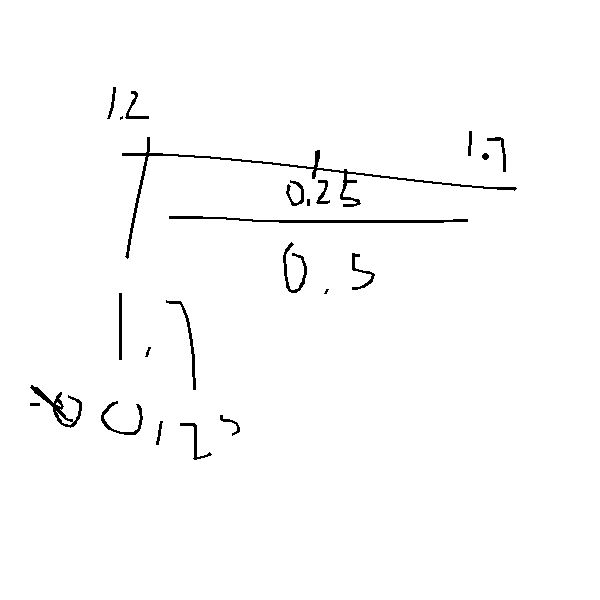 1.2 1.7
0.25
0.5
1.7
0.2